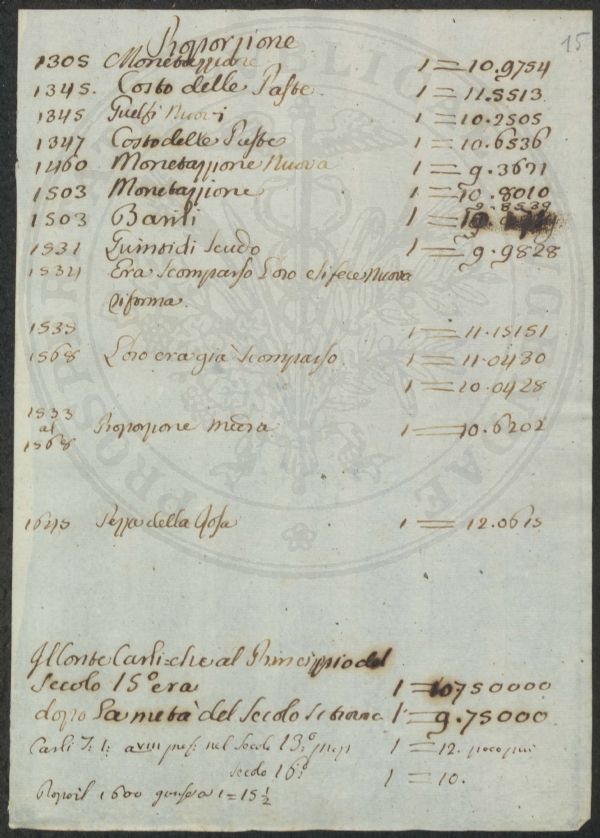 15
Proporzione
1305 Monetazzione 1 = 10.9754
1345. Costo delle Paste 1 = 11.5513
1345 Guelfi Nuovi 1 = 10.2505
1347 Costo delle Paste 1 = 10.6536
1460 Monetazzione Nuova 1 = 9.3671
1503 Monetazzione 1 = 10.8010
9.8539
1503 Barili 1 =
1531 Scudo 1 = 9.9828
1534 Era Scomparso l'oro e si fece Nuova
riforma.
1535 1 = 11.15151
1568 L'oro era già scomparso 1 = 11.0430
1 = 10.0428
1533
al
1568 Proporzione media 1 = 10.6202
1675 Pezza della Rosa 1 = 12.0615
Il Conte Carli = che al Princippio del
Secolo 15º era 1 = 10750000
dopo La metà del Secolo 1 = 9.75000
Carli T. 1: nel Secolo 13º 1 = 12. poco più
Secolo 16º 1 = 10.
1600 1 = 15 1/2